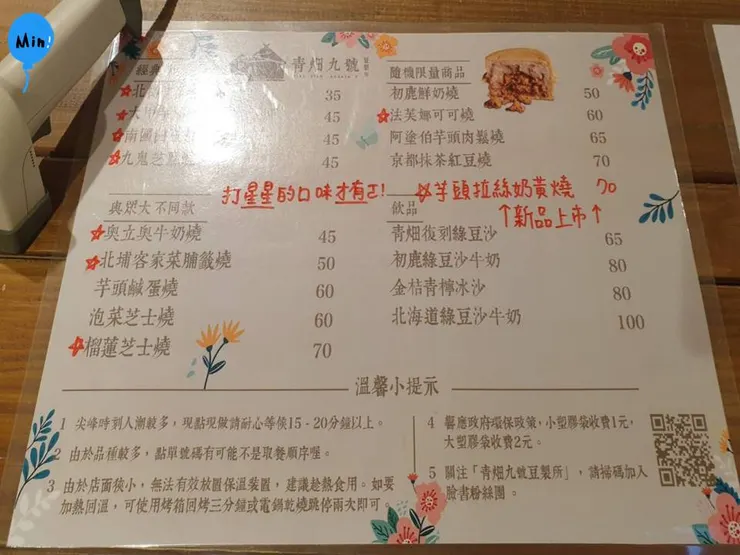 Min!
青畑九號
經典
北
35
大甲
45
南國
45
九鬼芝麻
45
隨機限量商品
初鹿鮮奶燒
50
法芙娜可可燒
60
阿塗伯芋頭肉鬆燒
65
京都抹茶紅豆燒
70
打星星的口味才有ㄛ!
芋頭拉絲奶黃燒 70
↑新品上市↑
與眾大不同款
奧立奧牛奶燒
45
北埔客家菜脯籤燒
50
芋頭鹹蛋燒
60
泡菜芝士燒
60
榴蓮芝士燒
70
飲品
青畑復刻綠豆沙
65
初鹿綠豆沙牛奶
80
金桔青檸冰沙
80
北海道綠豆沙牛奶
100
溫馨小提示
1 尖峰時刻人潮較多，現點現做請耐心等候15 - 20分鐘以上。
2 由於品種較多，點單號碼有可能不是取餐順序喔。
3 由於店面狹小，無法有效放置保溫裝置，建議趁熱食用。如要
加熱回溫，可使用烤箱回烤三分鐘或電鍋乾燒跳停兩次即可。
4 響應政府環保政策，小塑膠袋收費1元，
大塑膠袋收費2元。
5 關注「青畑九號豆製所」，請掃碼加入
臉書粉絲團。